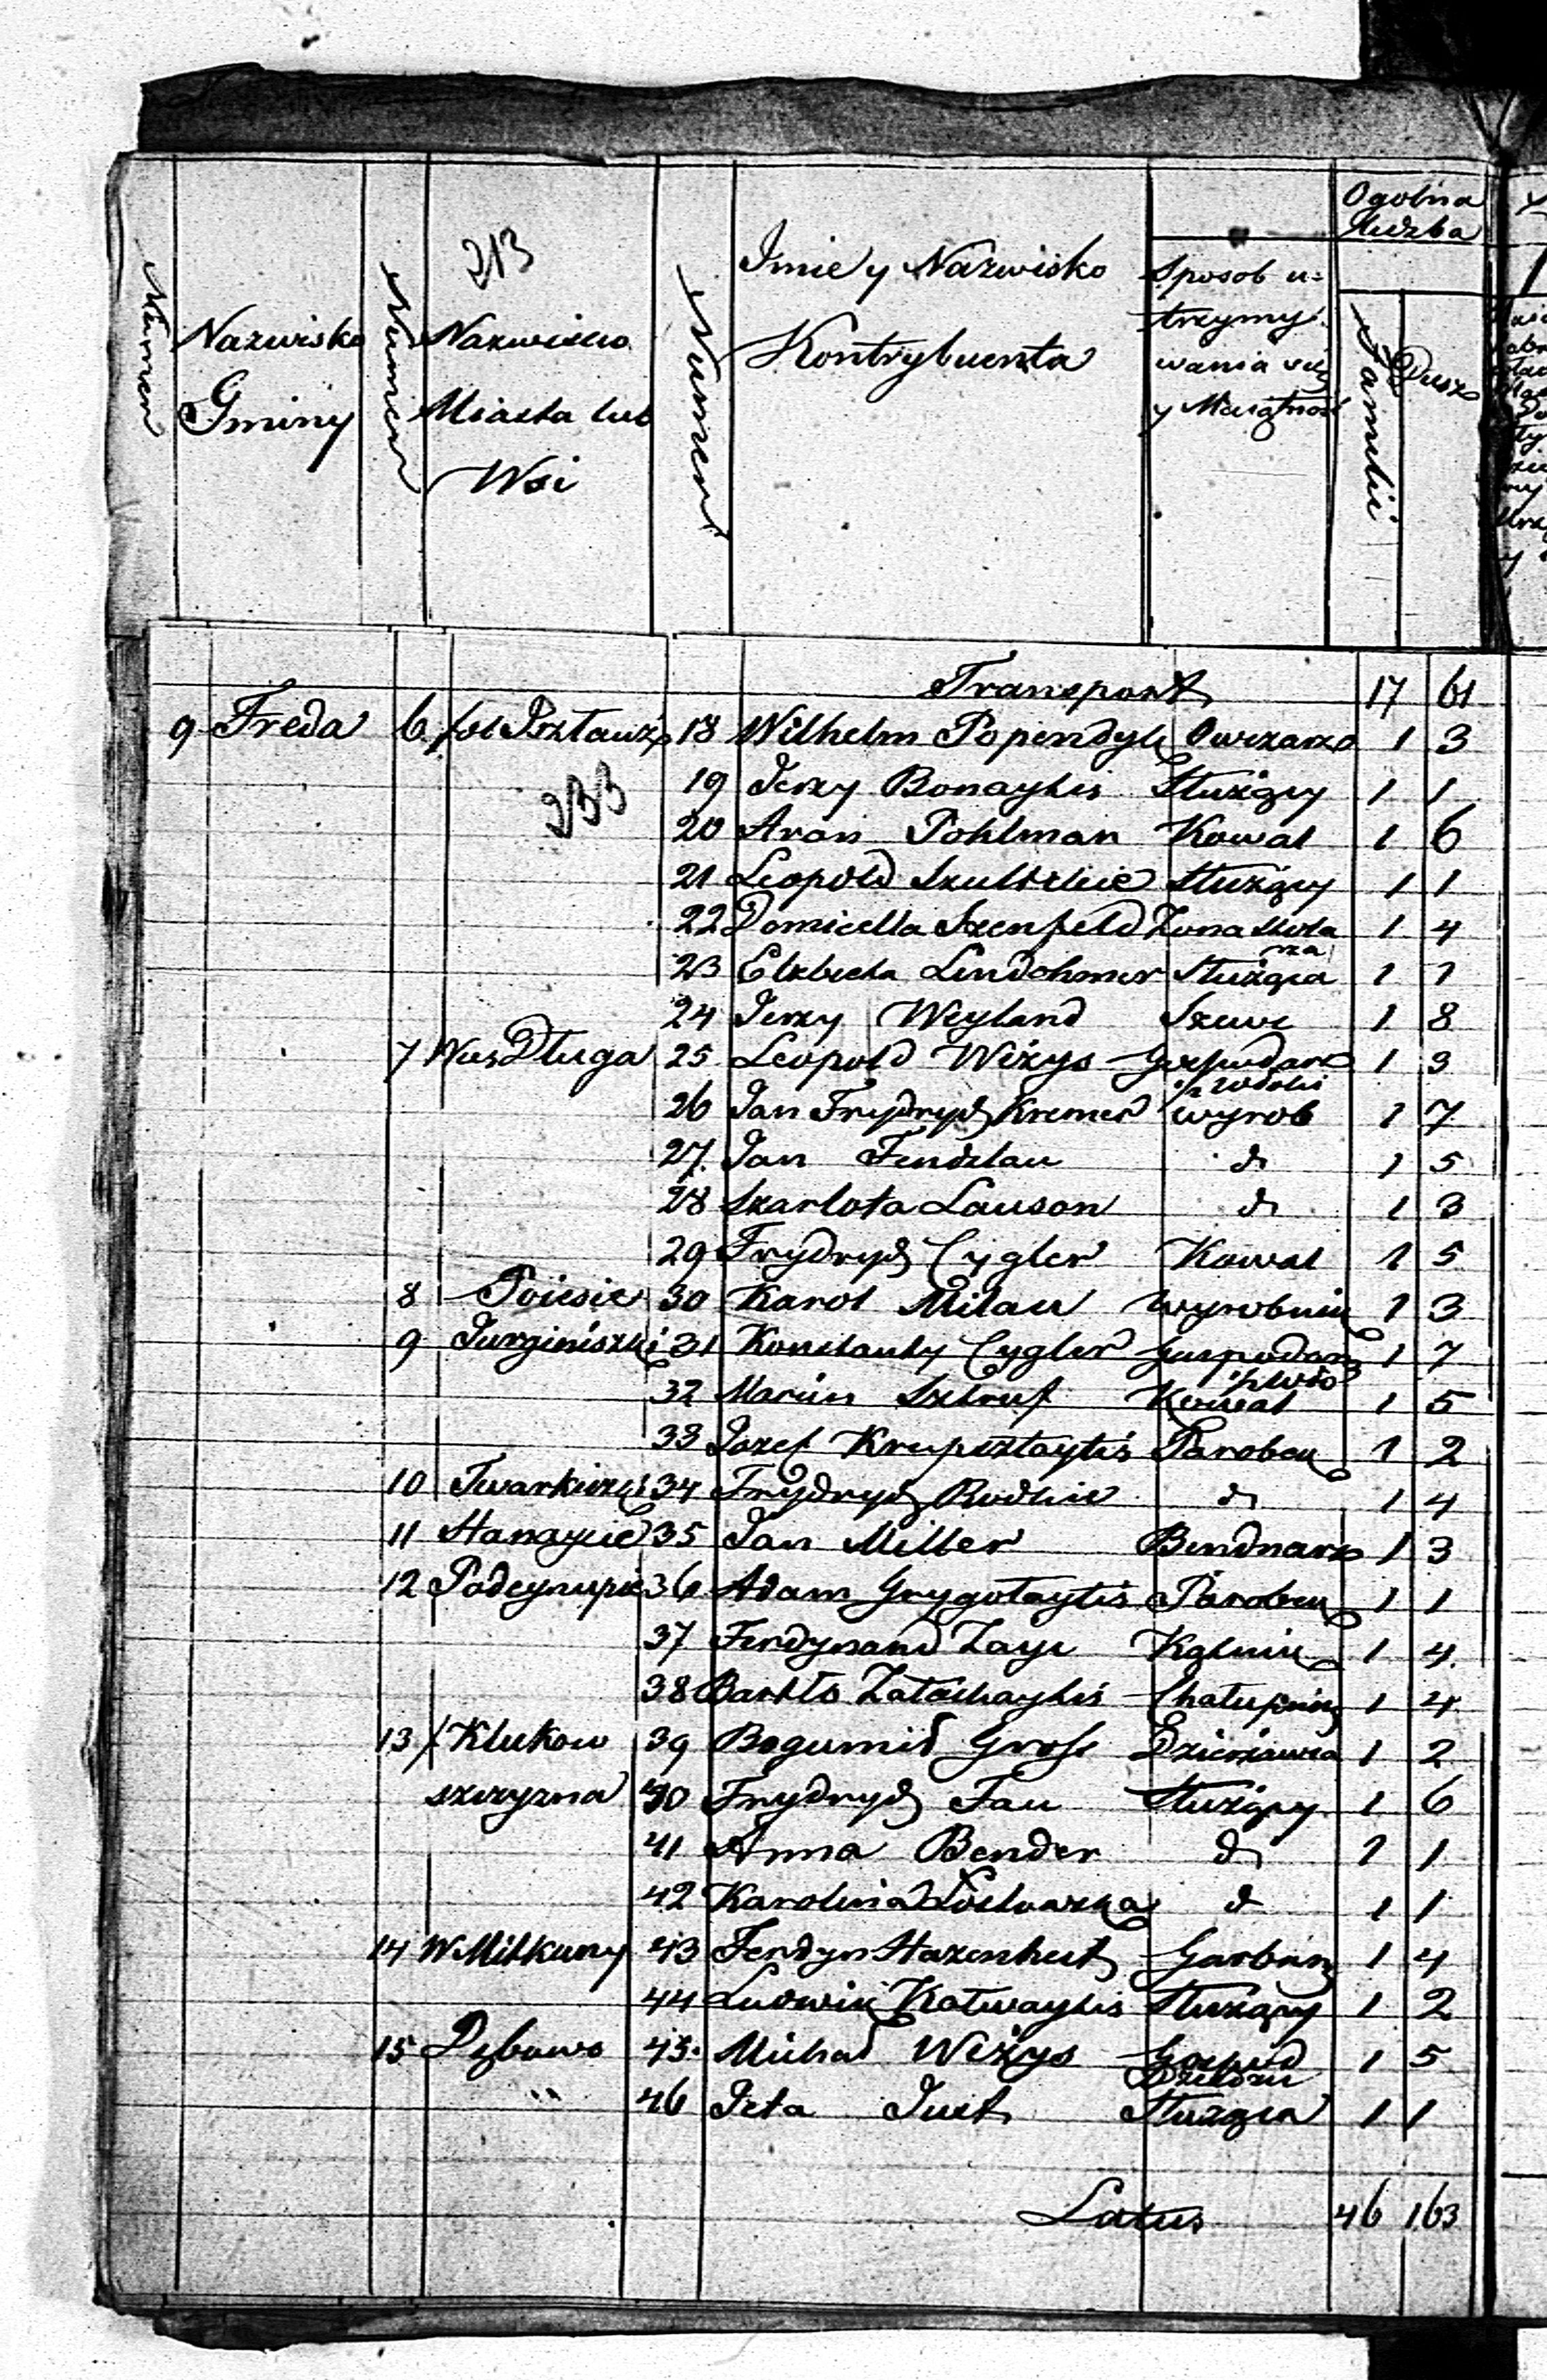 213
Numer
Nazwisko Gminy
Numer
Nazwisko Miasta lub Wsi
Numer
Imie y Nazwisko Kontrybuenta
Sposob u=
trzymy
wania się
y Maiątnosc
Ogolna
Liczba
Familii
Dusz
Transport 17 61
9 Freda 6 fol 18 Wilhelm Popendyk Owczarz 1 3
233
19 Jerzy Bonaytis Służący 1 1
20 Aron Pohlman Kowal 1 6
21 Leopold Szultzkie Służący 1 1
22 Domicella Szenfeld Zona Stola 1 4
rza
23 Elzbieta Lindohmer Służąca 1 1
24 Jerzy Weyland Szewc 1 8
7 Wies Długa 25 Leopold Wiżys Gospodarz 1 3
26 Jan Frydrych Kremer wyrob 1 7
27. Jan Fendzlau do 1 5
28 Szarlota Lauson do 1 3
29 Frydrych Cygler Kowal 1 5
8 Poiesie 30 Karol Milau wyrobnik 1 3
9 Jurginiszki 31 Konstanty Cygler Gospodarz 1 7
32 Marcin Sztruf Kowal 1 5
33 Jozef Krupsztaytis Parobek 1 2
10 34 Frydrych Budkie do 1 4
11 35 Jan Miller Bendnarz 1 3
12 36 Adam Grygołaytis Parobek 1 1
37 Ferdynand Zayc Kątnik 1 4.
38 Bartło Chałupnik 1 4
13 Klukow 39 Bogumił Gross Dzierżawca 1 2
szczyzna 40 Frydrych Fau Służący 1 6
41 Anna Bender do 1 1
42 Karolina do 1 1
14 W Mitkuny 43 Ferdyn Hazenhut Garbarz 1 4
44 Ludwik Kotwaytis Służący 1 2
15 Dębowo 45. Michał Wiżys Gospod 1 5
" 46 Jeta Just Służąca 1 1
Latus 46 163